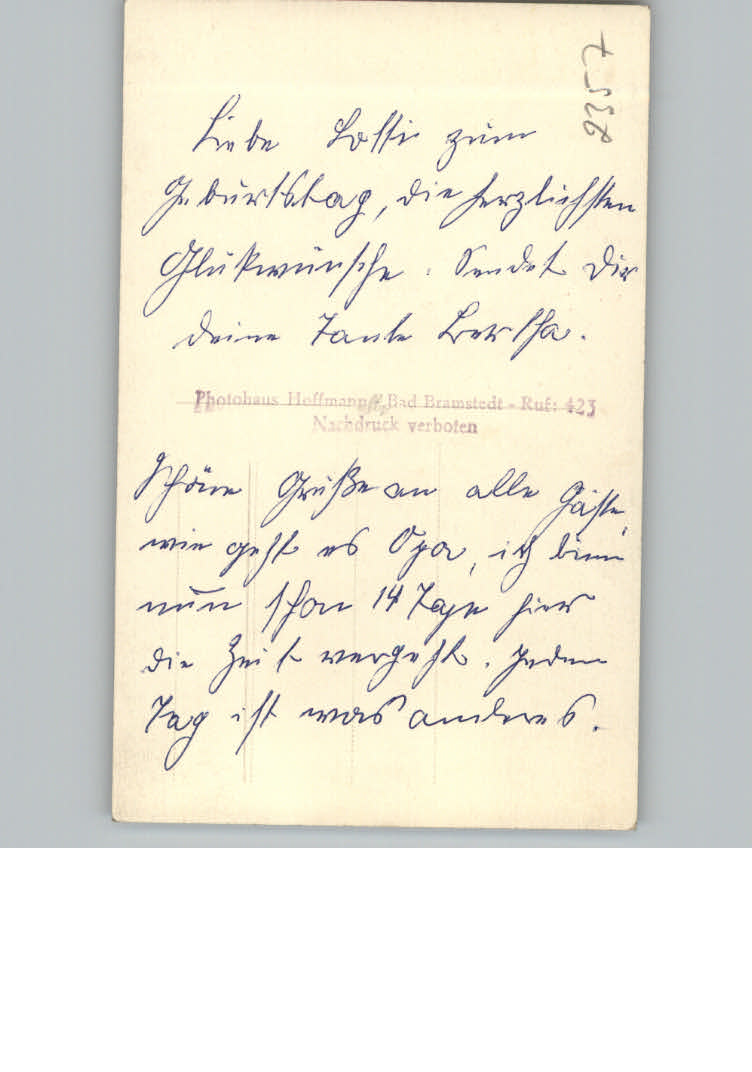 Liebe Lotti zum
Geburtstag, die herzlichsten
Glükwünsche. Sendet Dir
deine Tante Bertha.
Photohaus Hoffmann, Bad Bramstedt - Ruf: 423
Nachdruck verboten
Schöne Grüße an alle Gäste,
wie geht es Opa, ich bin
nun schon 14 Tage hier
die Zeit vergeht. Jeden
Tag ist was anderes.